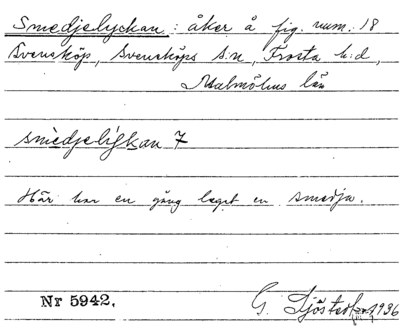 Smedjelyckan: åker å fig. num. 18
Svensköp, Svensköps s:n, Frosta h:d,
Malmöhus län
smedjelykan 7
Här har en gång legat en smedja.
Nr 5942.
G. Sjöstedt 1936